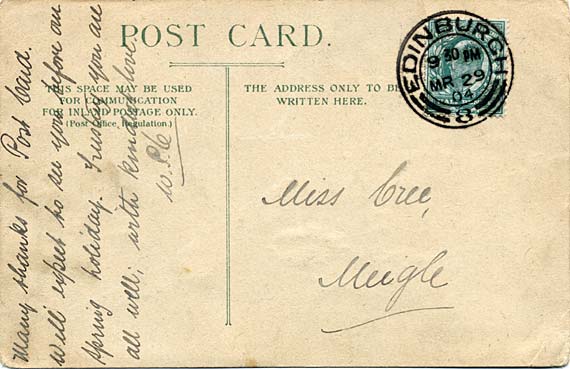 POST CARD.
THIS SPACE MAY BE USED
FOR COMMUNICATION
FOR INLAND POSTAGE ONLY.
(Post Office Regulation.)
THE ADDRESS ONLY TO BE
WRITTEN HERE.
EDINBURGH
9 30 PM
MR 29
04
8
Many thanks for Post Card.
Will expect to see you before our
Spring holiday. Trust you are
all well, with kind love.
Miss Cree,
Meigle